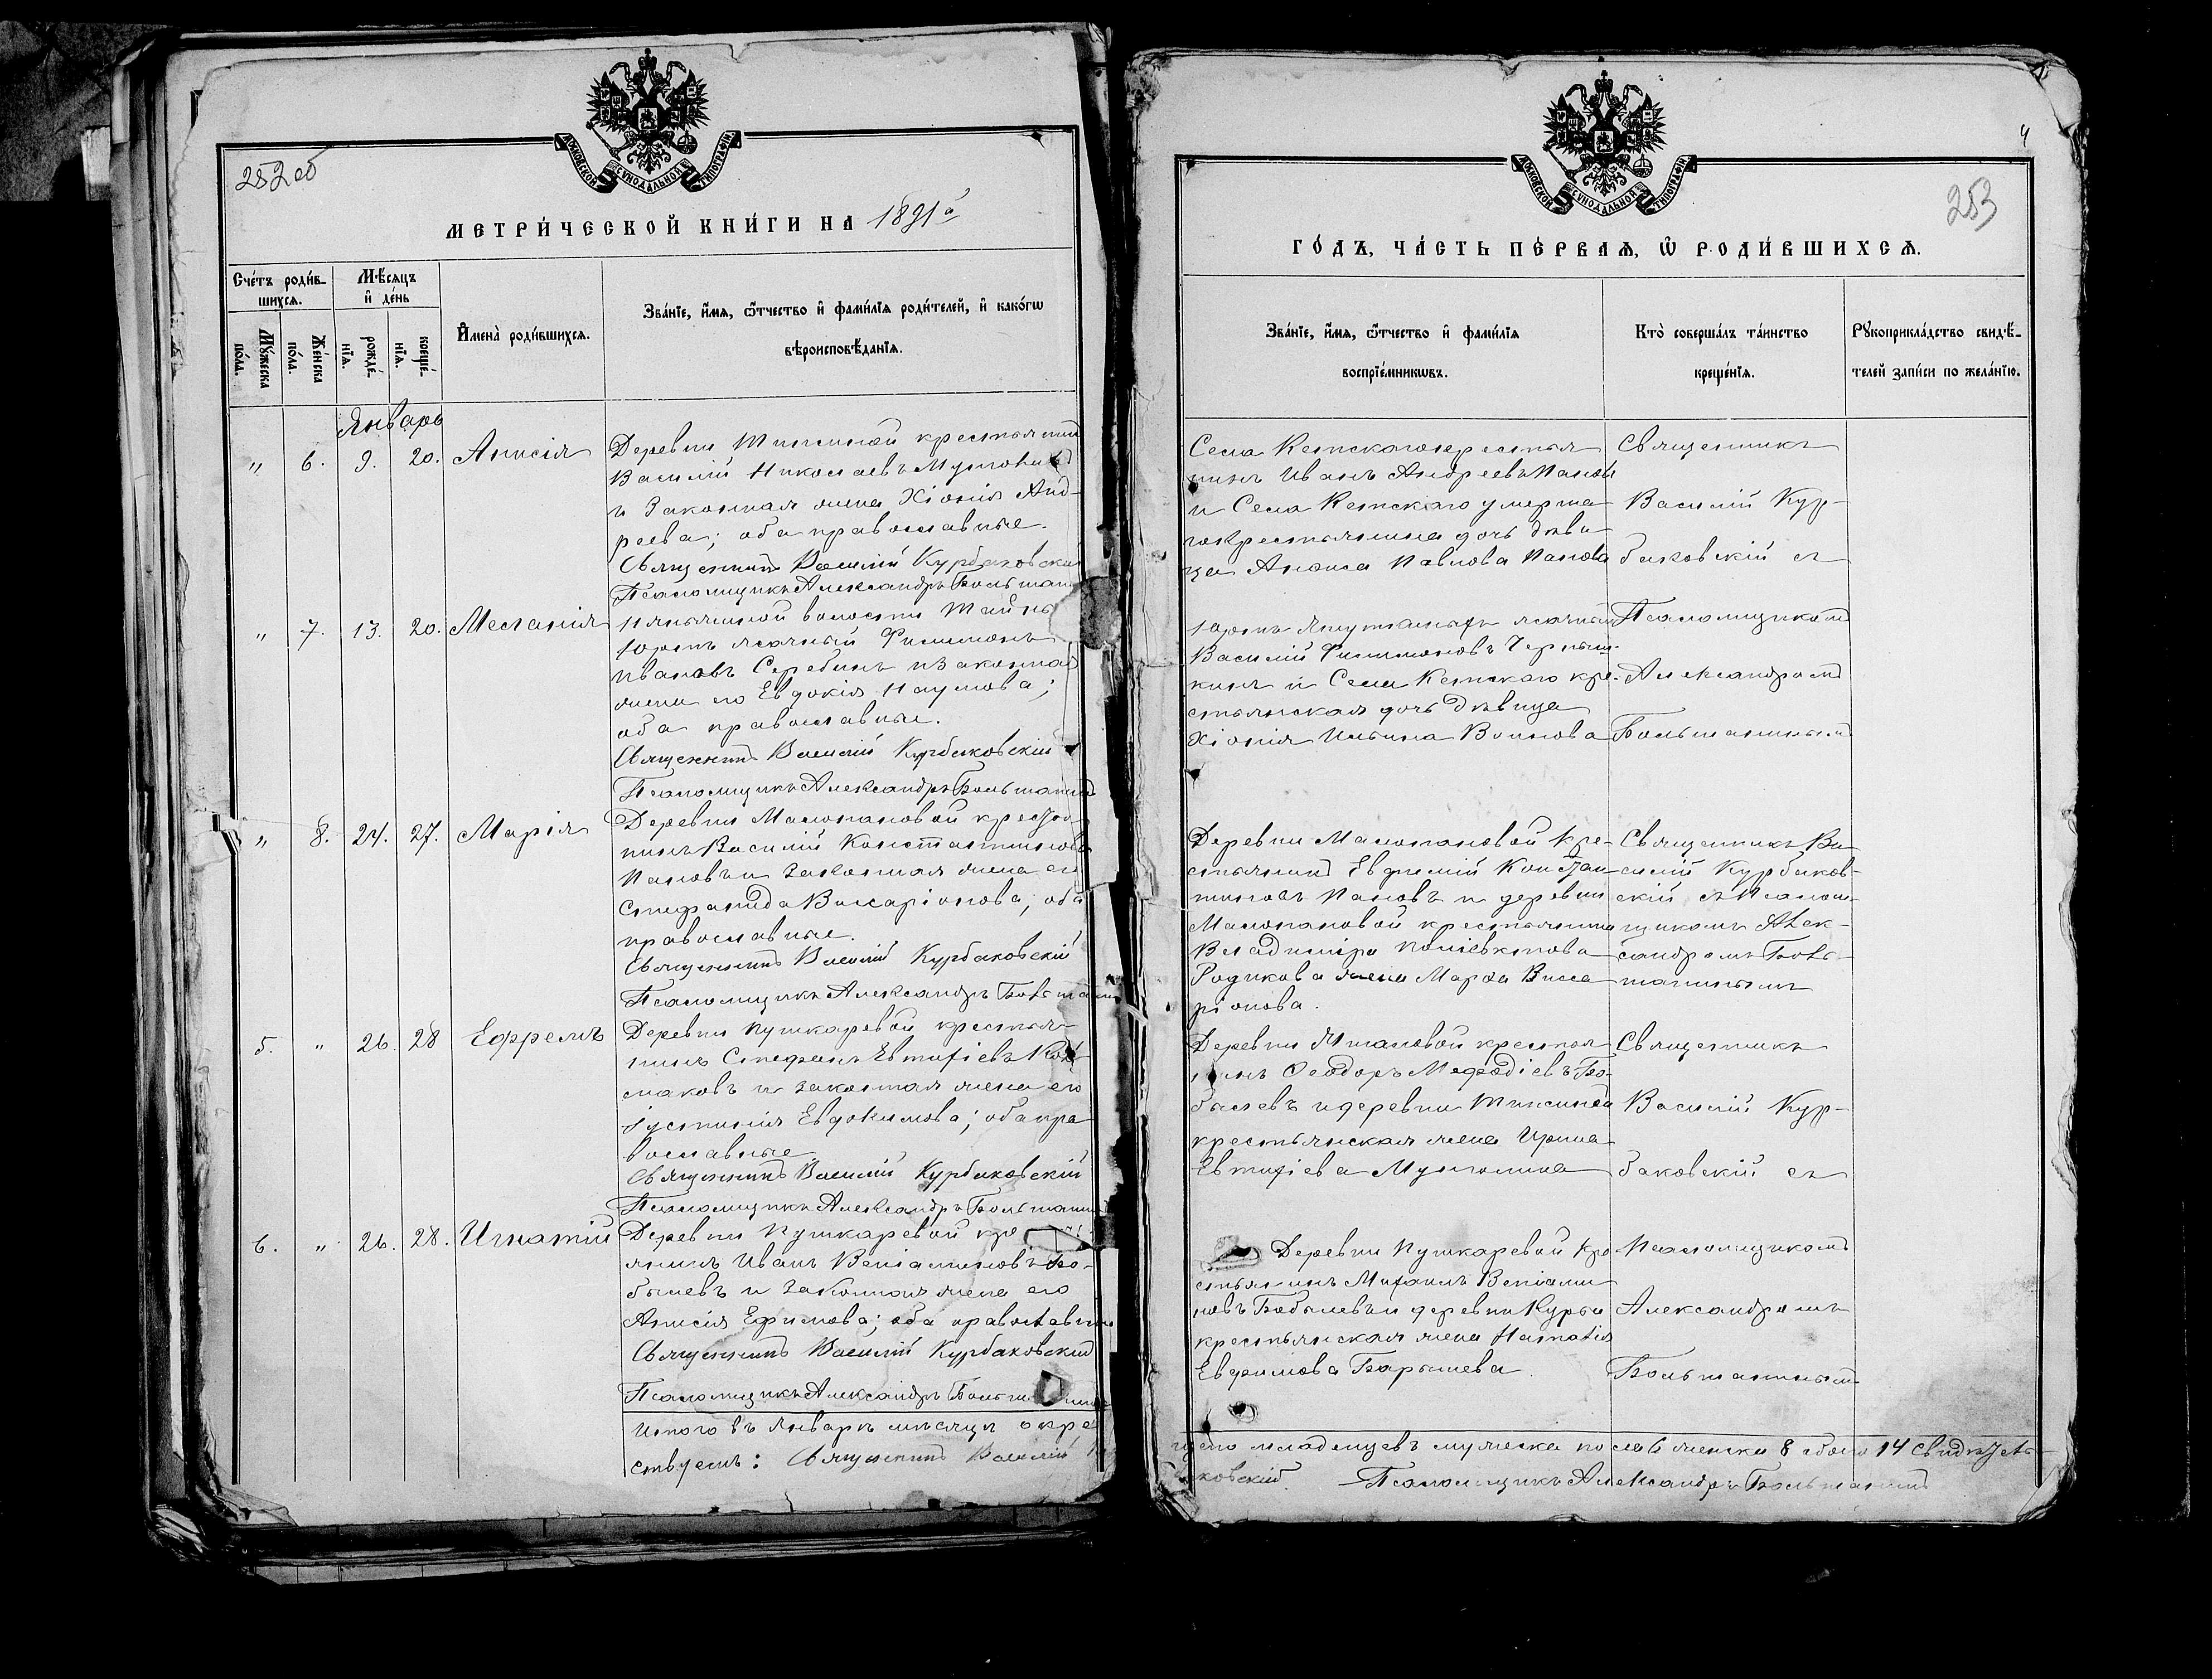 252 об
МОСКОВСКОЙ СѴНОДАЛЬНОЙ ТИПОГРАФІИ
МЕТРИ́ЧЕСКОЙ КНИ́ГИ НА 1891 й
Сче́тъ роди́в-
шихсѧ.
Мѣ́сѧцъ
и҆ де́нь
Мꙋ́жеска
по́ла.
Же́нска
по́ла.
рожде́-
нїѧ.
креще́-
нїѧ.
И҆мена̀ роди́вшихсѧ.
Зва́нїе, и҆́мѧ, ѻ҆́тчество и҆ фами́лїѧ роди́телей, и҆ како́гѡ
вѣроисповѣ́данїѧ.
Январь
„ 6. 9. 20. Анисія
Деревни Типсиной крестьянинъ
Василій Николаевъ
и законная жена Хіонія Анд-
реева; оба православные.
Священникъ Василій Курбаковскій
Псаломщикъ Александръ Большанинъ
„ 7. 13. 20. Меланія
волости
Юртъ ясачный Филимонъ
Ивановъ Серебинъ и законная
жена его Евдокія Наумова;
оба православные.
Священникъ Василій Курбаковскій
Псаломщикъ Александръ Большанинъ
„ 8. 24. 27. Марія
Деревни Малопановой крестья-
нинъ Василій Константиновъ
Пановъ и законная жена его
Стефанида Виссаріонова; оба
православные.
Священникъ Василій Курбаковскій
Псаломщикъ Александръ Большанинъ
5. „ 26. 28 Ефремъ
Деревни Пушкаревой крестья-
нинъ Стефанъ Евтихіевъ Кол-
маковъ и законная жена его
Іустинія Евдокимова; оба пра
вославные
Священникъ Василій Курбаковскій
Псаломщикъ Александръ Большанинъ
6. „ 26. 28. Игнатій
Деревни Пушкаревой кре
янинъ Иванъ Веніаминовъ Бо-
былевъ и законная жена его
Анисія Ефимова; оба православны
Священникъ Василій Курбаковскій
Псаломщикъ Александръ Больша нинъ
Итого въ Январѣ мѣсяцѣ окре
ствуемъ: Священникъ Василій
4
253
МОСКОВСКОЙ СѴНОДАЛЬНОЙ ТИПОГРАФІИ
ГО́ДЪ, ЧА́СТЬ ПЕ́РВАѦ, Ѽ РОДИ́ВШИХСѦ.
Зва́нїе, и҆́мѧ, ѻ҆́тчество и҆ фами́лїѧ
воспрїе́мникѡвъ.
Кто̀ соверша́лъ та́инство
креще́нїѧ.
Рꙋкоприкла́дство свидѣ́-
телей за́писи по жела́нїю.
Села Кетскаго крестья
нинъ Иванъ Андреевъ Пановъ
и Села Кетскаго умерша
го крестьянина дочь дѣви
ца Анѳиса Павлова Панова
Священникъ
Василій Кур-
баковскій съ
Юртъ ясачный
Василій Филимоновъ
кинъ и Села Кетскаго кре-
стьянская дочь дѣвица
Хіонія Ильина Воинова
Псаломщикомъ
Александромъ
Большанинымъ
Деревни Малопановой кре-
стьянинъ Евфимій Констан
тиновъ Пановъ и деревни
Малопановой крестьянина
Владиміра Поліевктова
Родикова жена Марѳа Висса
ріонова.
Священникъ Ва
силій Курбаков-
скій съ Псалом-
щикомъ Алек-
сандромъ Боль-
шанинымъ
Деревни крестья
нинъ Ѳеодоръ Меѳодіевъ Бо-
былевъ и деревни Типсиной
крестьянская жена Ирина
Евтихіева
Священникъ
Василій Кур-
баковскій съ
Деревни Пушкаревой кре
стьянинъ Михаилъ Веніами
новъ Бобылевъ и деревни Курьи
крестьянская жена Наталія
Евфимова Барышева.
Псаломщикомъ
Александромъ
Большанинымъ
щено младенцевъ мужеска пола 6 женска 8 обоего 14 свидѣтель-
ковскій. Псаломщикъ Александръ Большанинъ